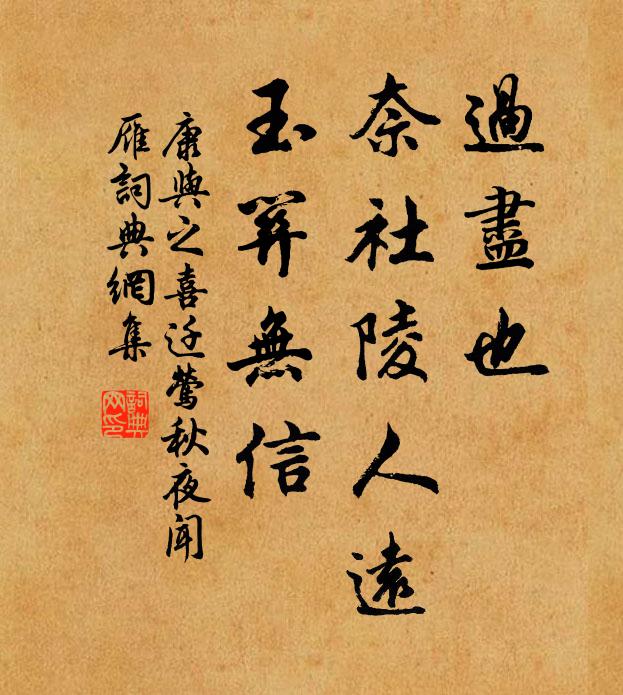 過盡也
奈社陵人遠
玉關無信
康與之喜迁鶯秋夜聞
雁詞典網集
詞典
网印